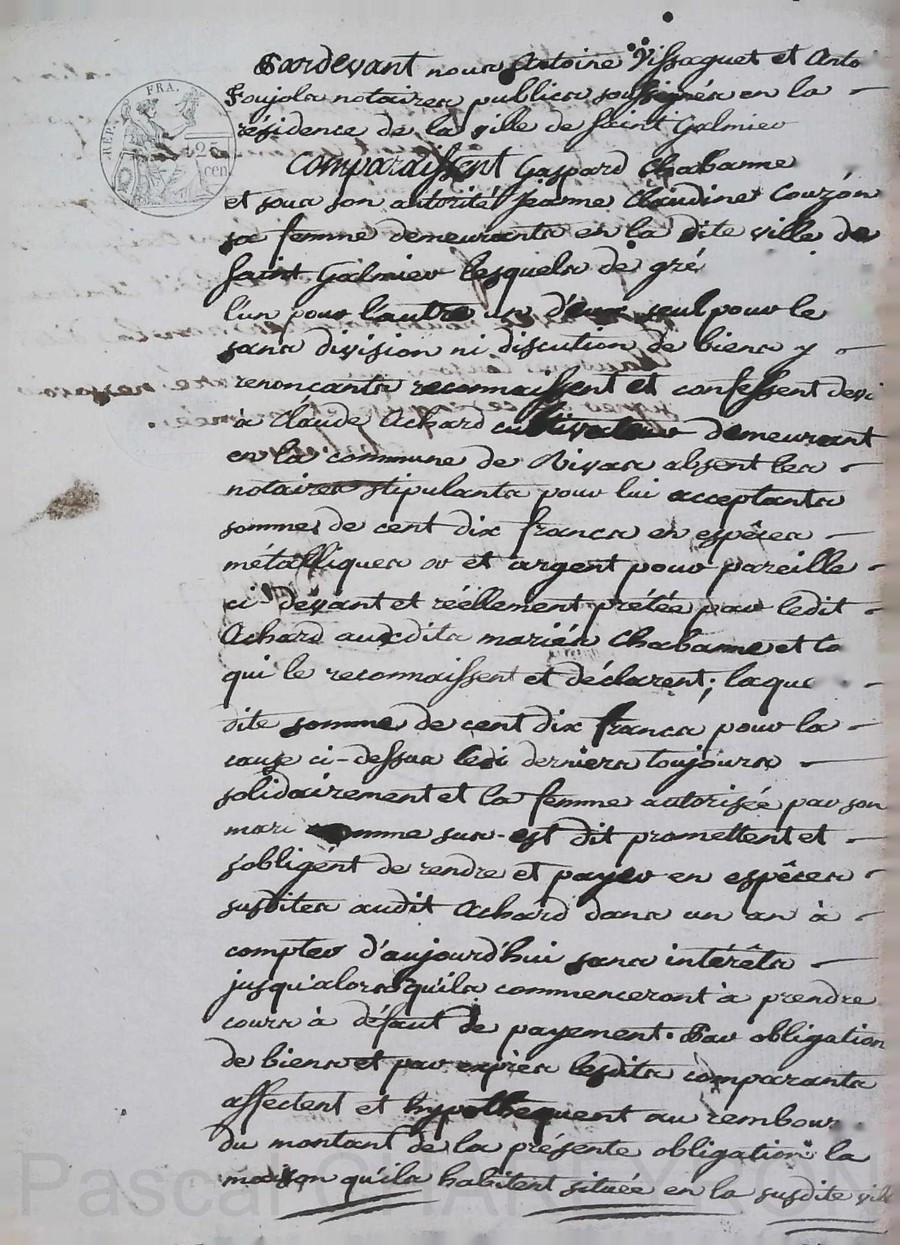 Pardevant nous Antoine Vissaguet et Anto
Poujols notaires publics soussignés en la
REP. FRA.
résidence de la ville de Saint Galmier
25 cen
Comparaissent Gaspard Chabanne
et sous son autorité Jeanne Claudine Couzon
sa femme demeurants en la dite ville de
Saint Galmier lesquels de gré
l'un pour l'autre un d'eux seul pour le
sans division ni discution de biens y
renonçants reconnaissent et confessent devoi
à Claude Achard cultivateur demeurant
en la commune de Rivas absent les
notaires stipulants pour lui acceptants
somme de cent dix francs en espèces
métalliques or et argent pour pareille
ci devant et réellement prétée par ledit
Achard auxdits mariés Chabanne et
qui le reconnaissent et déclarent; laque
dite somme de cent dix francs pour la
cause ci-dessus derniers toujours
solidairement et la femme autorisée par son
mari comme sus-est dit promettent et
s'obligent de rendre et payer en espèces
susdites audit Achard dans un an à
compter d'aujourd'hui sans intérêts
jusqu'alors qu'ils commenceront à prendre
cours à défaut de payement. Par obligation
de biens et par exprès lesdits comparants
affectent et hypothèquent au rembour
du montant de la présente obligation la
maison qu'ils habitent située en la susdite vill
Pascal CHAREYRON